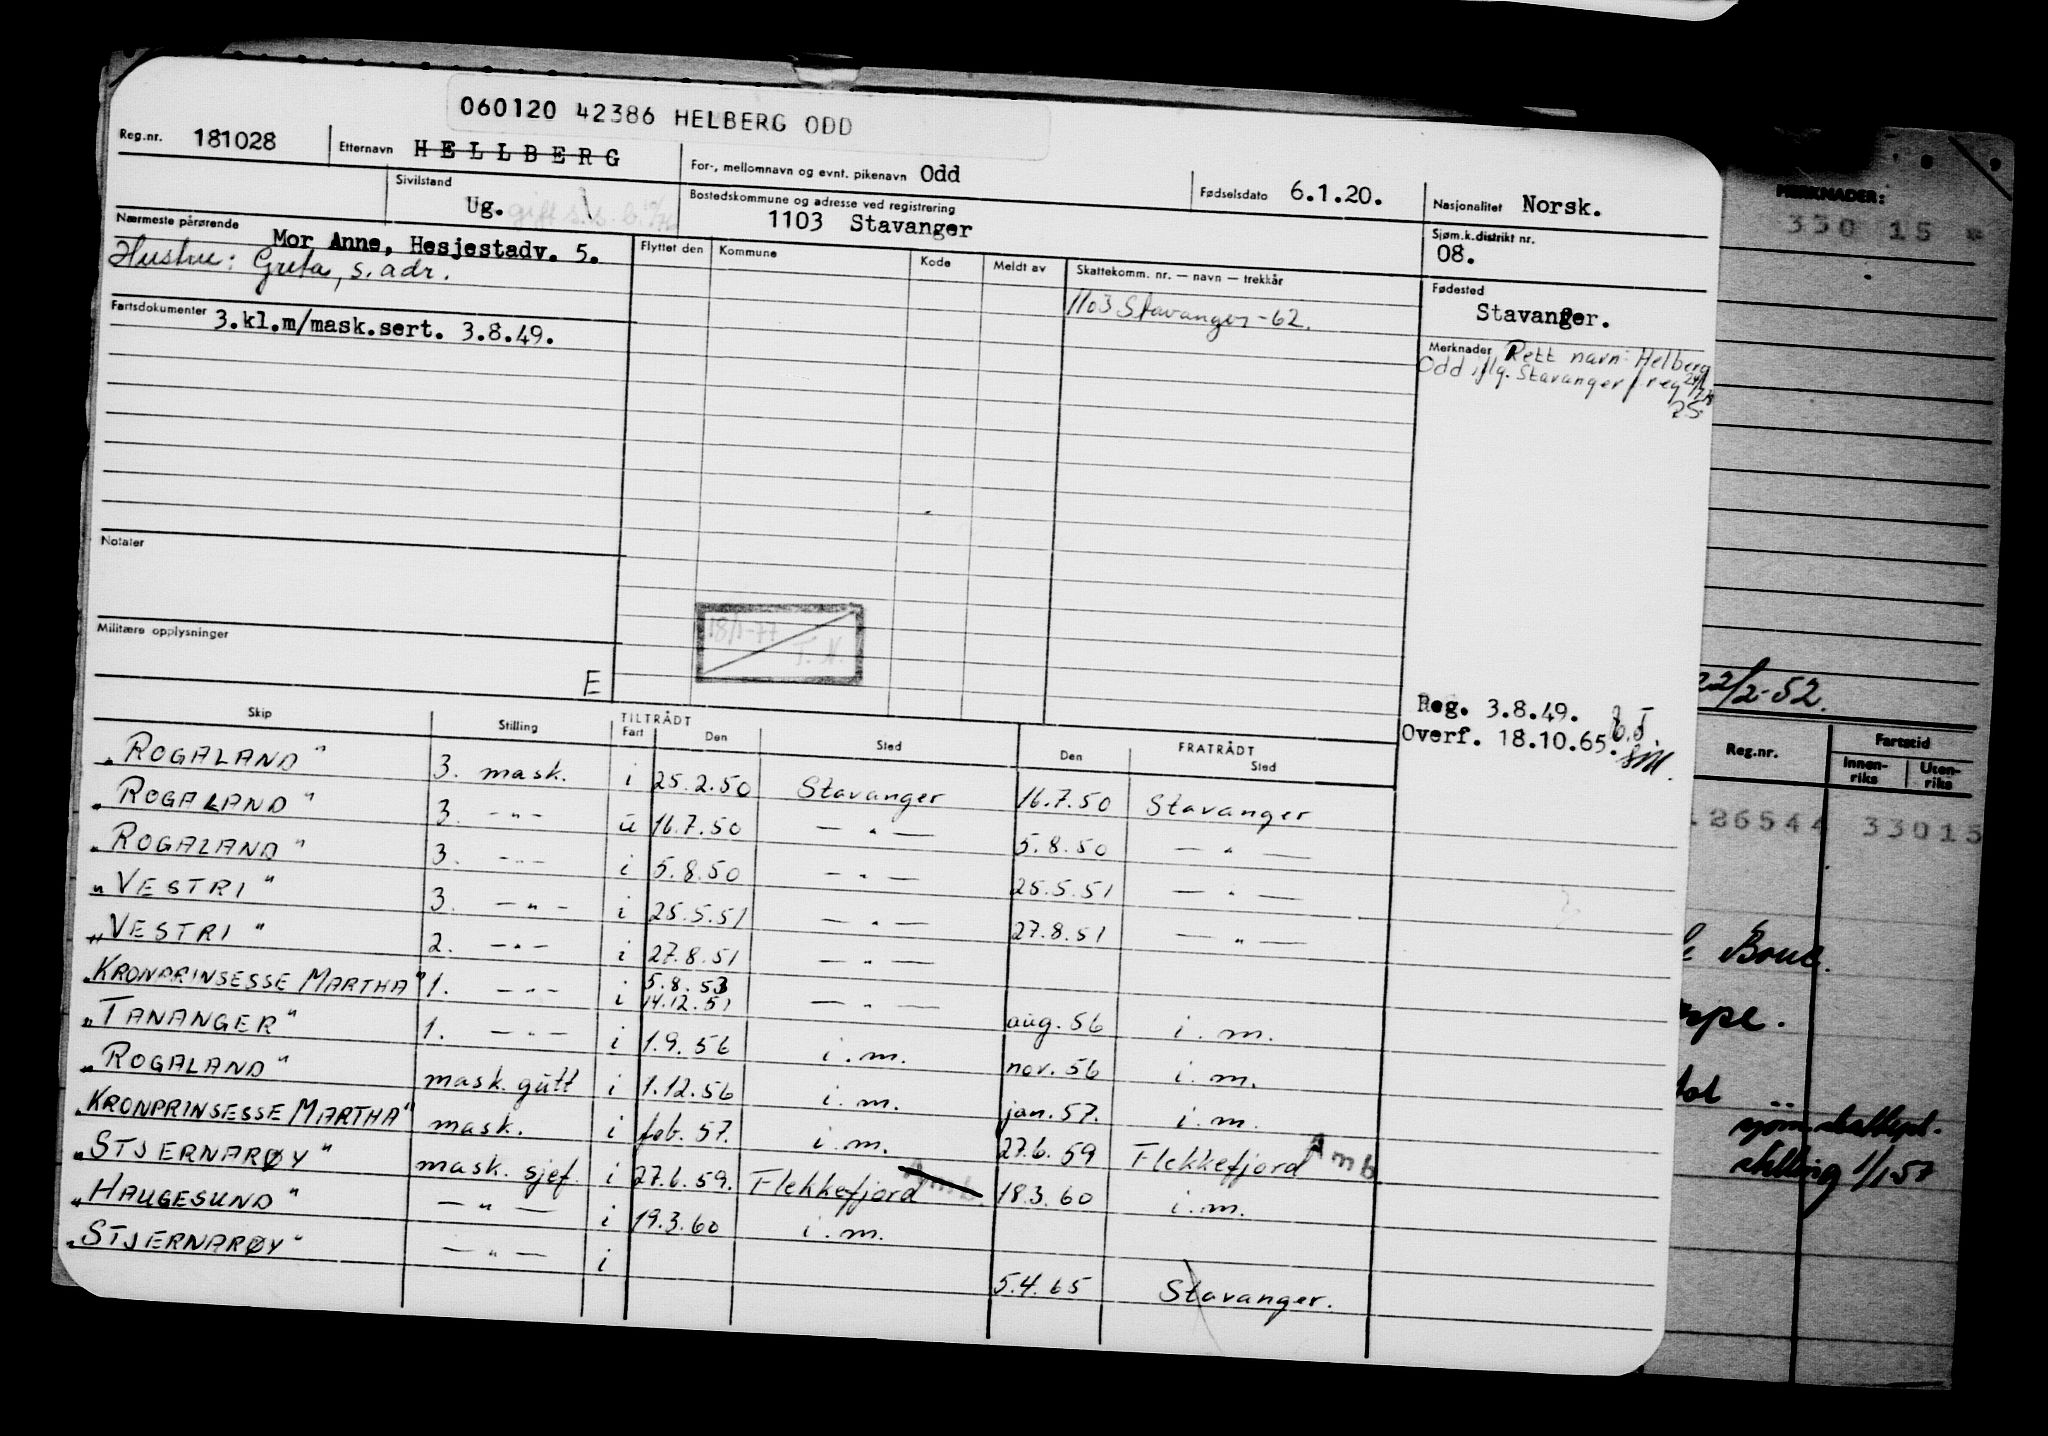 060120 42386 HELBERG ODD
Reg.nr. 181028 Etternavn HELLBERG For-, mellomnavn og evnt. pikenavn Odd Fødselsdato 6.1.20. Nasjonalitet Norsk.
Sivilstand Ug. gift Bostedskommune og adresse ved registrering 1103 Stavanger Sjøm.k.distrikt nr. 08.
Nærmeste pårørende Mor Anne, Hesjestadv. 5.
Hustru: Greta, s. adr.
Flyttet den Kommune Kode Meldt av Skattekomm. nr. — navn — trekkår
1103 Stavanger -62.
Fødested Stavanger.
Fartsdokumenter 3.kl.m/mask.sert. 3.8.49.
Merknader Rett navn: Helberg
Odd iflg. Stavanger f.reg
Notater
18/1-77
T. N.
Militære opplysninger
E
Reg. 3.8.49.
Overf. 18.10.65.
Skip Stilling TILTRÅDT Fart Den Sted FRATRÅDT Den Sted
„ROGALAND" 3. mask. i 25.2.50 Stavanger 16.7.50 Stavanger
„ROGALAND" 3. —"— u 16.7.50 —"— 5.8.50 —"—
„ROGALAND" 3. —"— i 5.8.50 —"— 25.5.51 —"—
„VESTRI" 3. —"— i 25.5.51 —"— 27.8.51 —"—
„VESTRI" 2. —"— i 27.8.51 —"—
„KRONPRINSESSE MARTHA" 1. —"— i 5.8.53 14.12.51 —"— aug. 56 i.m.
„TANANGER" 1. —"— i 1.9.56 i.m. nov. 56 i.m.
„ROGALAND" mask. gutt i 1.12.56 i.m. jan. 57. i.m.
„KRONPRINSESSE MARTHA" mask. i feb. 57. i.m. 27.6.59 Flekkefjord Amb
„STJERNARØY" mask. sjef. i 27.6.59. Flekkefjord 18.3.60 i.m.
„HAUGESUND" —"— i 19.3.60 i.m.
„STJERNARØY" —"— i 5.4.65 Stavanger.
MERKNADER:
330 15
22/2-52.
Reg.nr. Fartstid
Innen-riks Uten-riks
126544 33015
Boue.
1/1 57